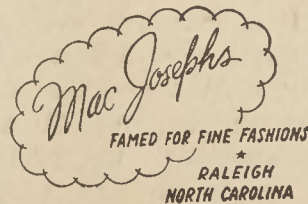 Mac Josephs
FAMED FOR FINE FASHIONS
RALEIGH
NORTH CAROLINA